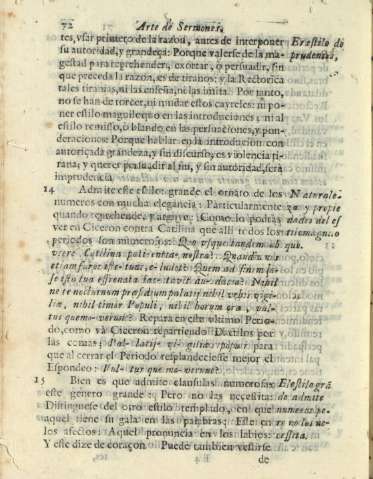 72 Arte de Sermones,
tes, vsar primero de la razon, antes de interponer
su autoridad, y grandeça: Porque valerse de la ma-
gestad para reprehender, exortar, ò persuadir, sin
que preceda la razon, es de tiranos; y la Rectorica
tales tiranias, ni las enseña, ni las imita. Por tanto,
no se han de torcer, ni mudar estos cayreles: ni po-
ner estilo magnifico en las introducciones; ni al
estilo remisso, ò blando en las persuasiones, y pon-
deraciones: Porque hablar en la introduccion con
autoriçada grandeza, y sin discurso, es violencia ti-
rana; y querer persuadir al fin, y sin autoridad, será
imprudencia.
Estilo de
prudencia,
14 Admite este estilo grande el ornato de los
numeros con mucha elegancia: Particularmente
quando reprehende, y arguye: Como lo podràs
ver en Ciceron contra Catilina que alli todos los
periodos son numerosos: Quo vsque tandem ab
vtere Catilina patientia nostra? Quandiu
etiam furor iste tuus, eludet? Quem ad finem
se ista tua effrenata iactavit audacia? Nihil
ne te nocturnum præsidium palatij nihil vrbis vigi-
liæ, nihil timor Populi, nihil horum ora, vul-
tus que moverunt? Repara en este vltimo Perio-
do, como và Ciceron repartiendo Dactilos por
las comas; Palatij - vigiliæ, populi para
que al cerrar el Periodo resplandeciesse mejor el
Espondeo: Vultus que moverunt?
Naturale-
za y propie
dades del es
tilo magno
15 Bien es que admite clausulas numerosas
este genero grande: Pero no las necesita:
Distinguese del otro estilo templado, en que
aquel tiene su gala en las palabras; Este en
los afectos: Aquel pronuncia en los labios:
Y este dize de coraçon. Puede tambien vestirse
El estilo grã
de admite
numeros pe-
ro no los ne-
cessita.
de